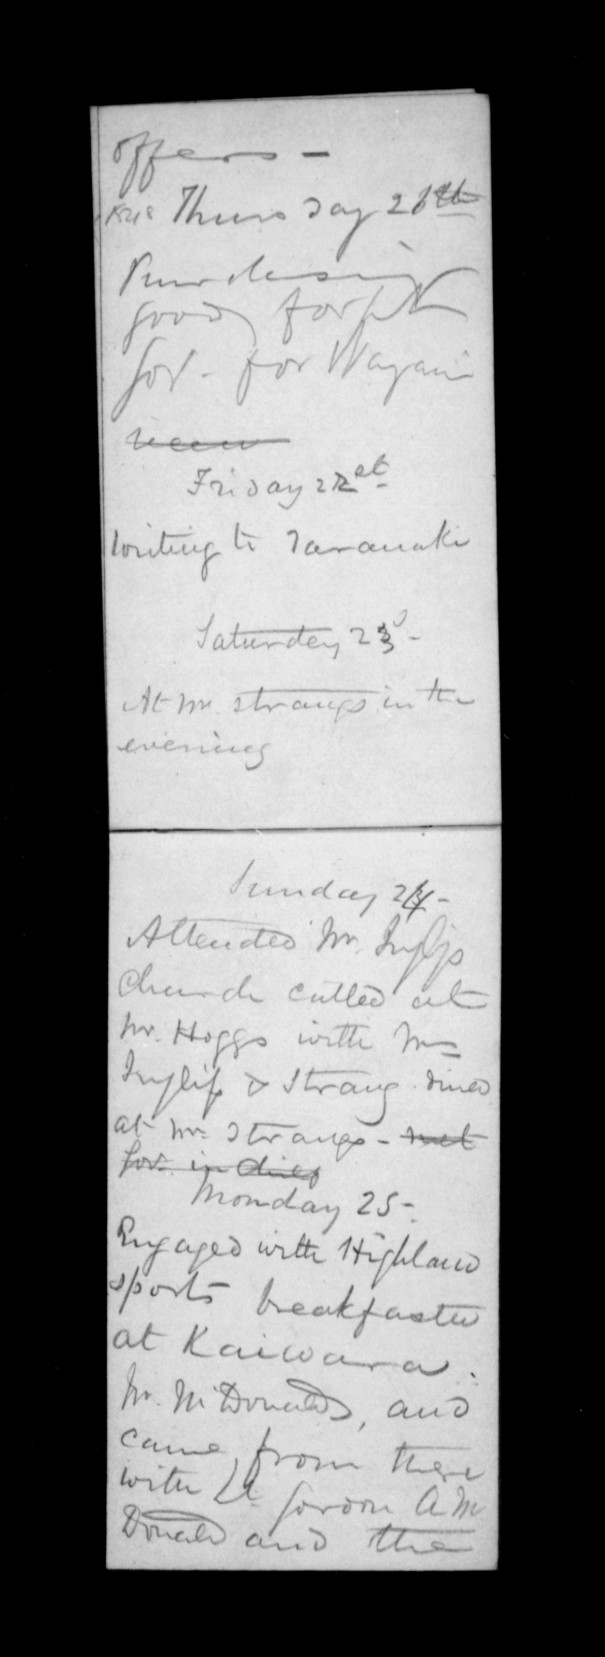 offers -
1848 Thursday 21th
Purchasing
goods for Lt
Gov. for Wagani
Friday 22st
Writing to Taranaki
Saturday 23d -
At Mr. Strangs in the
evening
Sunday 24 -
Attended Mr. Inglis
Church called at
Mr. Hoggs with Mrs
Inglis & Strang dined
at Mr. Strangs - met
Gov. in Chief
Monday 25 -
Engaged with Highland
sports breakfasted
at Kaiwara.
Mr. McDonalds, and
came from there
with Lt Gordon A Mc
Donald and the